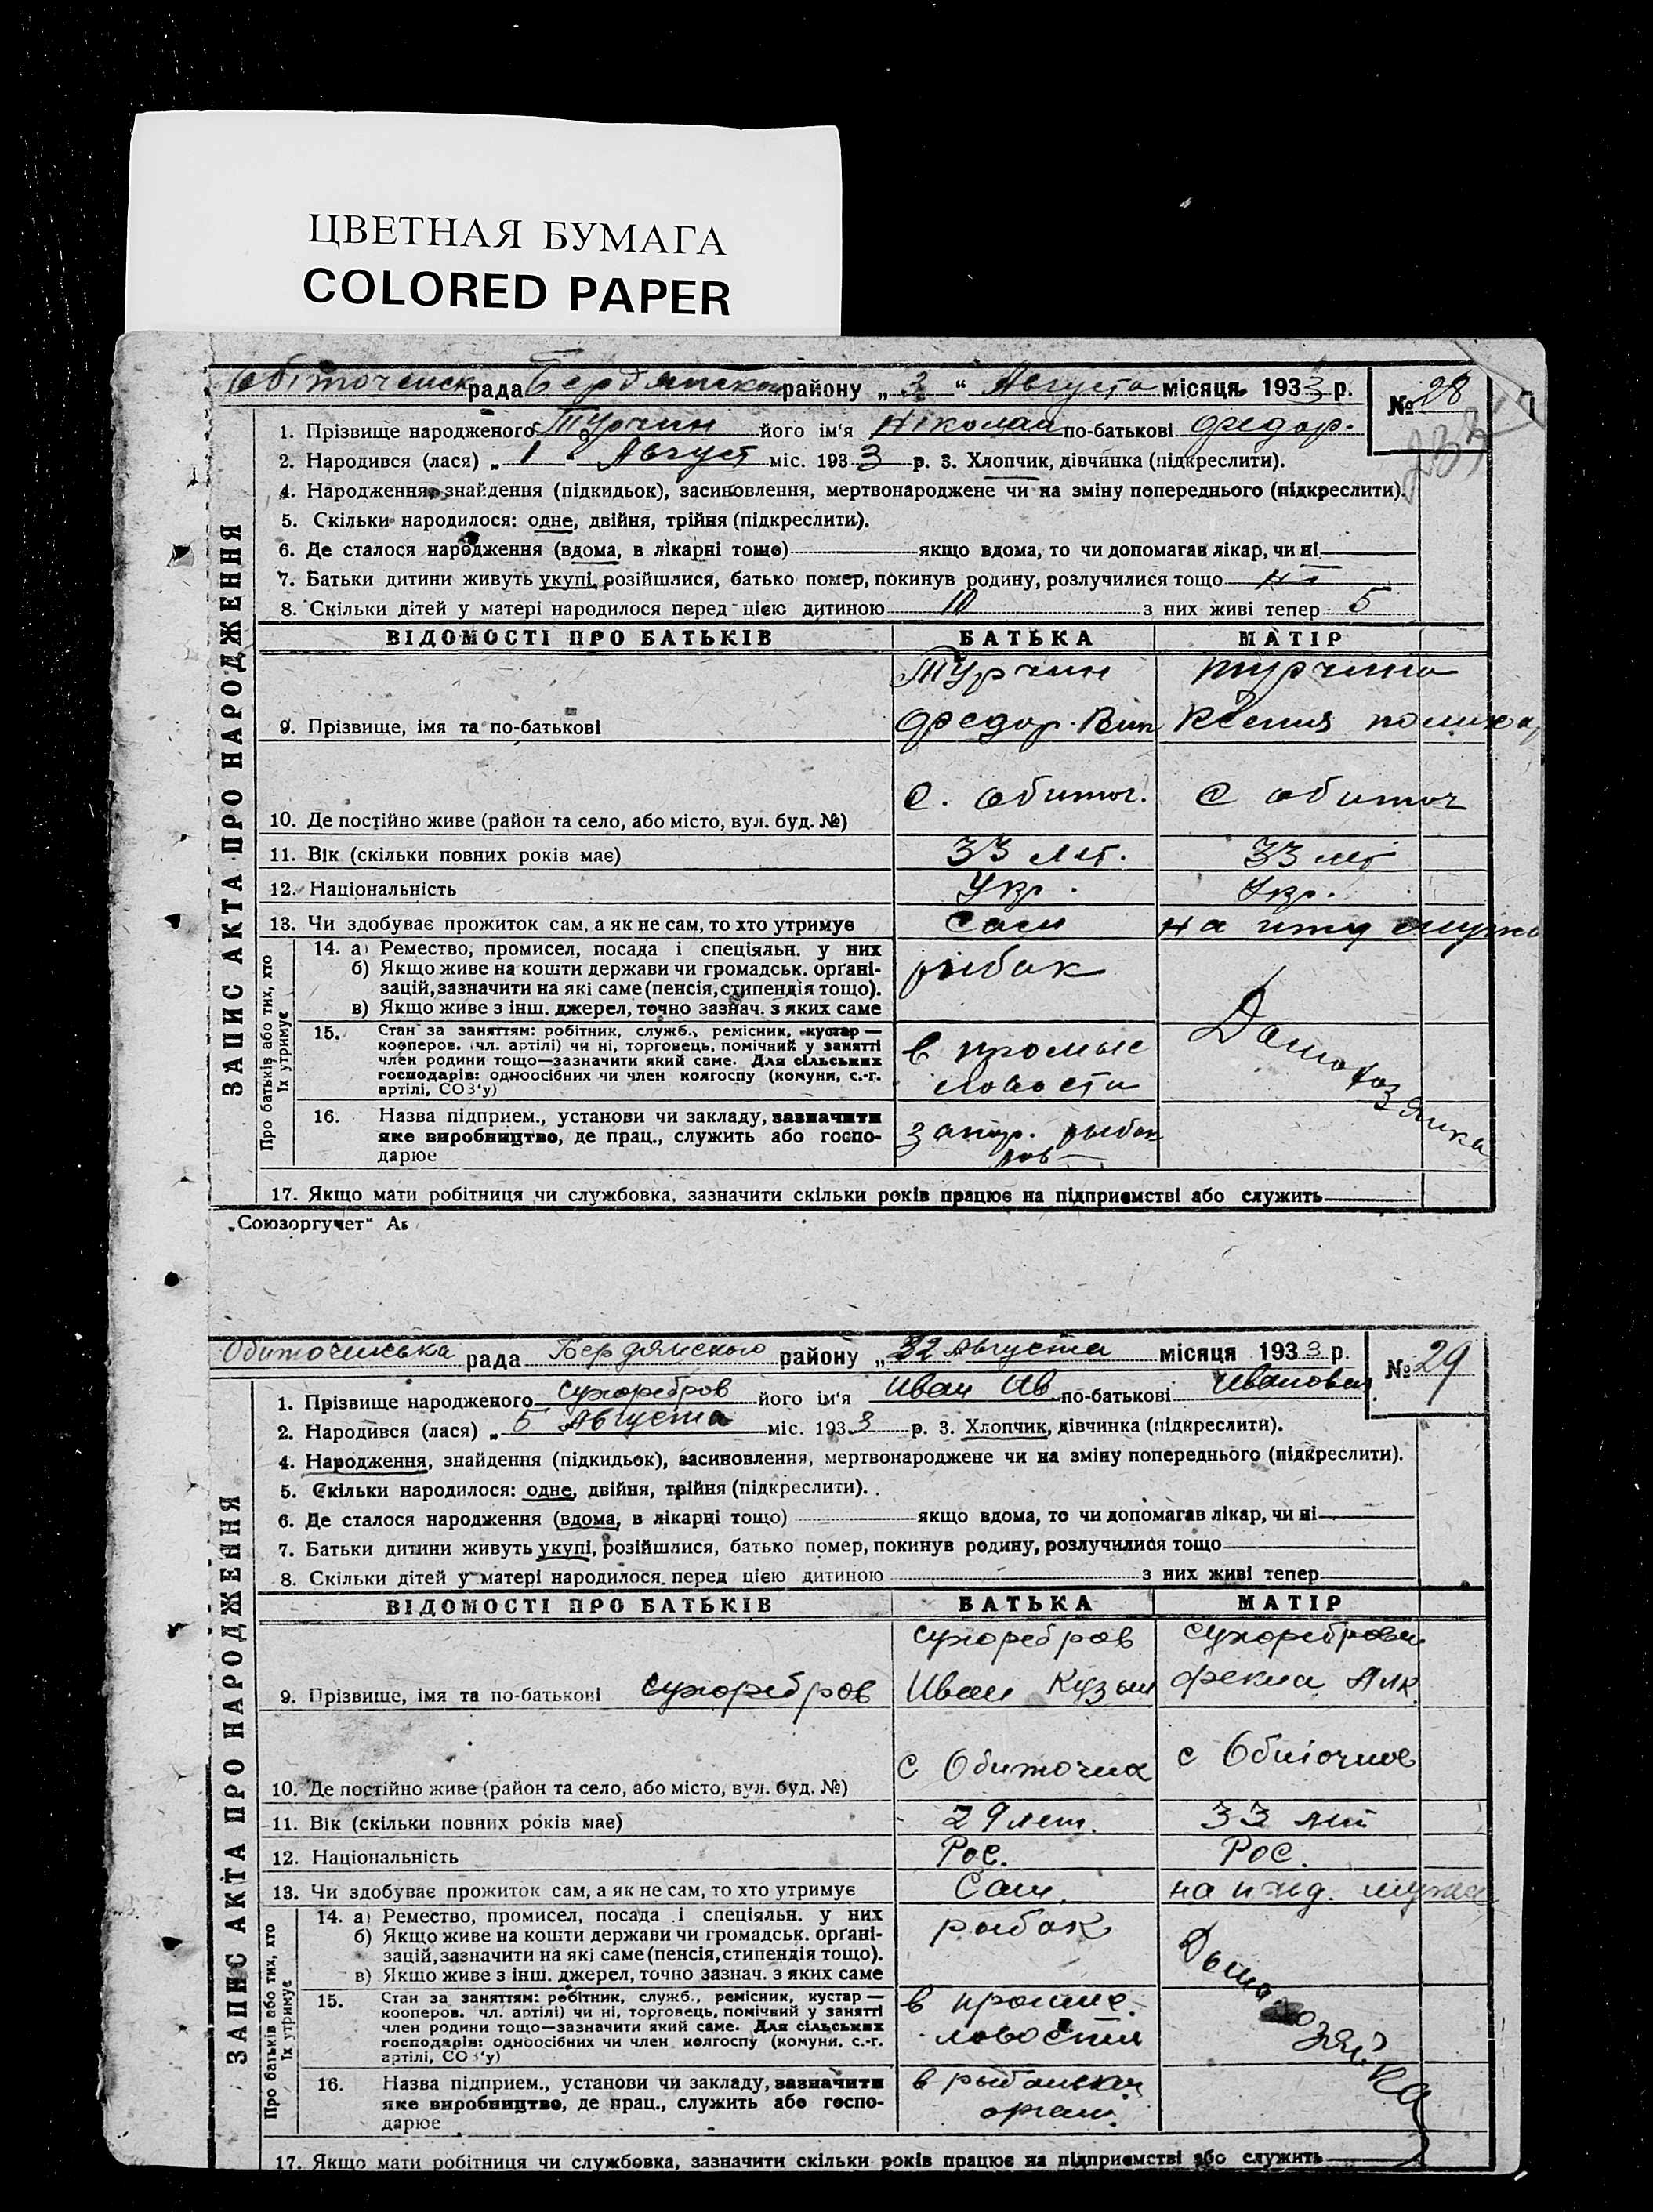 ЦВЕТНАЯ БУМАГА
COLORED PAPER
рада Бердянского району „ 3 “ Августа місяця 1933 р. № 28
1. Прізвище народженого Турчин його ім'я Николай по-батькові Федор.
2. Народився (лася) „ 1 “ Август міс. 1933 р. 3. Хлопчик, дівчинка (підкреслити).
4. Народження, знайдення (підкидьок), засиновлення, мертвонароджене чи на зміну попереднього (підкреслити).
5. Скільки народилося: одне, двійня, трійня (підкреслити).
6. Де сталося народження (вдома, в лікарні тощо) якщо вдома, то чи допомагав лікар, чи ні
7. Батьки дитини живуть укупі, розійшлися, батько помер, покинув родину, розлучилися тощо
8. Скільки дітей у матері народилося перед цією дитиною 10 з них живі тепер 5
ВІДОМОСТІ ПРО БАТЬКІВ БАТЬКА МАТІР
Турчин Турчина
9. Прізвище, імя та по-батькові Федор Ксения
с. Обиточ. с Обиточ
10. Де постійно живе (район та село, або місто, вул. буд. №)
11. Вік (скільки повних років має) 33 лет. 33 лет
12. Національність Укр. Укр.
13. Чи здобуває прожиток сам, а як не сам, то хто утримує Сам на ижд мужа
14. а) Ремество, промисел, посада і спеціяльн. у них рибак
б) Якщо живе на кошти держави чи громадськ. орґані-
зацій, зазначити на які саме (пенсія, стипендія тощо).
в) Якщо живе з інш. джерел, точно зазнач. з яких саме
Домохазяика
15. Стан за заняттям: робітник, служб., ремісник, кустар —
кооперов. (чл. артілі) чи ні, торговець, помічний у занятті
член родини тощо—зазначити який саме. Для сільських
господарів: одноосібних чи член колгоспу (комуни, с.-г.
артілі, СОЗ'у)
в промыс
ловости
16. Назва підприєм., установи чи закладу, зазначити
яке виробництво, де прац., служить або госпо-
дарює
17. Якщо мати робітниця чи службовка, зазначити скільки років працює на підприємстві або служить
ЗАПИС АКТА ПРО НАРОДЖЕННЯ
Про батьків або тих, хто
їх утримує
„Союзоргучет“
Обиточенська рада Бердямского району „ Августа місяця 1933 р. № 29
1. Прізвище народженого Сухоребров його ім'я Иван Ив по-батькові Иванович
2. Народився (лася) „ 5 Августа міс. 1933 р. 3. Хлопчик, дівчинка (підкреслити).
4. Народження, знайдення (підкидьок), засиновлення, мертвонароджене чи на зміну попереднього (підкреслити).
5. Скільки народилося: одне, двійня, трійня (підкреслити).
6. Де сталося народження (вдома, в лікарні тощо) якщо вдома, то чи допомагав лікар, чи ні
7. Батьки дитини живуть укупі, розійшлися, батько помер, покинув родину, розлучилися тощо
8. Скільки дітей у матері народилося перед цією дитиною з них живі тепер
ВІДОМОСТІ ПРО БАТЬКІВ БАТЬКА МАТІР
Сухоребров Сухореброва
9. Прізвище, імя та по-батькові Сухоребров Иван Кузьм Фекла Алк.
с Обиточна с Обиточное
10. Де постійно живе (район та село, або місто, вул. буд. №)
11. Вік (скільки повних років має) 29 лет. 33 лет
12. Національність Рос. Рос.
13. Чи здобуває прожиток сам, а як не сам, то хто утримує Сам. на ижд. мужа
14. а) Ремество, промисел, посада і спеціяльн. у них рыбак
б) Якщо живе на кошти держави чи громадськ. орґані-
зацій, зазначити на які саме (пенсія, стипендія тощо).
в) Якщо живе з інш. джерел, точно зазнач. з яких саме
15. Стан за заняттям: робітник, служб., ремісник, кустар —
кооперов. чл. артілі) чи ні, торговець, помічний у занятті
член родини тощо—зазначити який саме. Для сільських
господарів: одноосібних чи член колгоспу (комуни, с.-г.
артілі, СОЗ'у)
ловости
16. Назва підприєм., установи чи закладу, зазначити
яке виробництво, де прац., служить або госпо-
дарює
17. Якщо мати робітниця чи службовка, зазначити скільки років працює на підприємстві або служить
ЗАПИС АКТА ПРО НАРОДЖЕННЯ
Про батьків або тих, хто
їх утримує